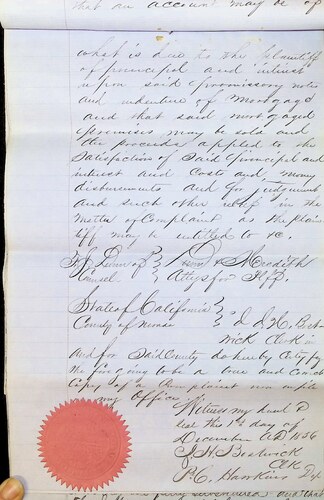 that an account may be of
what is due to the Plaintiff
of principal and interest
upon said promissory notes
and indenture of Mortgage
and that said mortgaged
premises may be sold and
the proceeds applied to the
Satisfaction of Said principal and
interest and Costs and money
disbursments and for judgment
and such other relief in the
matter of Complaint as the plain
tiff may be entitled to &c.
of Meredith
Counsel Attys for Plff.
State of California
County of J. H. Bost
wick Clerk in
and for Said County do hereby Certify
the foregoing to be a true and Correct
Copy of a Complaint now on file
in my Office
Witness my hand &
seal this 1st day of
December AD 1856
J. H. Bostwick
Clk
P. C. Hawkins Dep